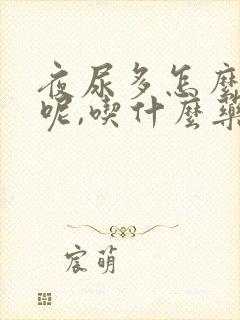 夜尿多怎麽
呢,喫什麽藥
宸萌